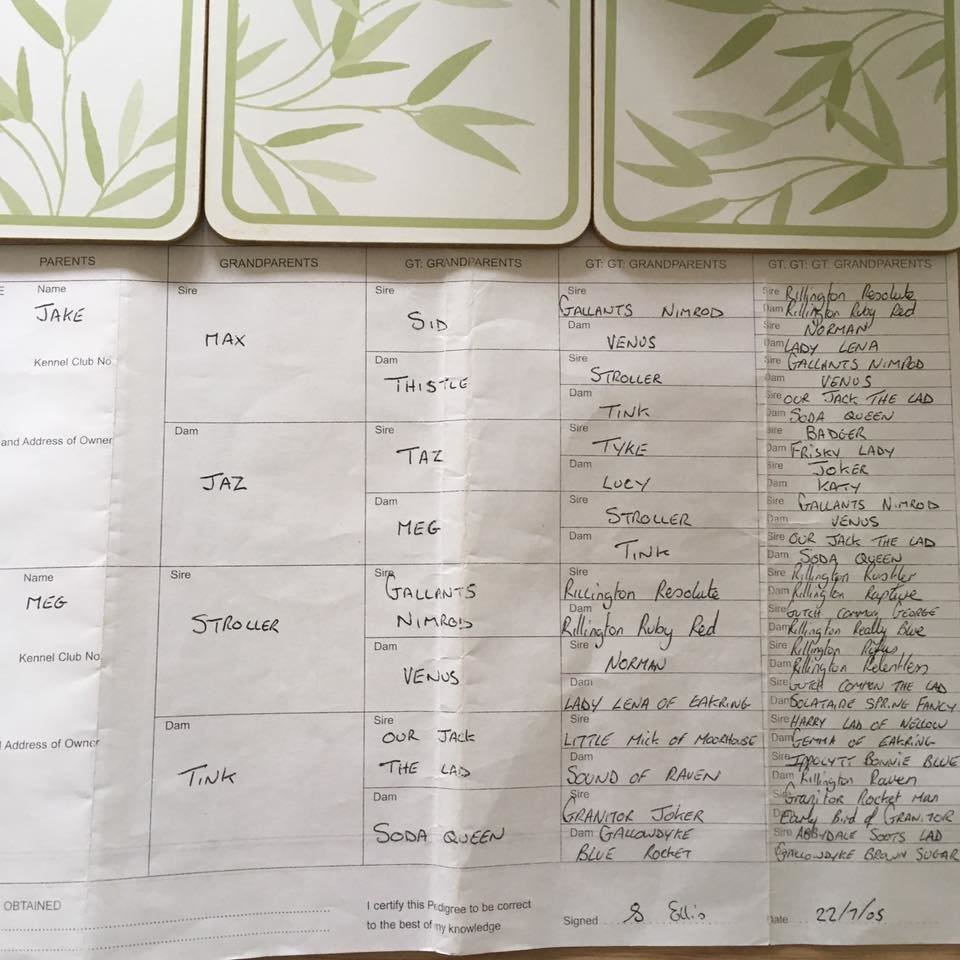 PARENTS
GRANDPARENTS
GT: GRANDPARENTS
GT: GT: GRANDPARENTS
GT: GT: GT: GRANDPARENTS
Name
JAKE
Kennel Club No
and Address of Owner
Name
MEG
Kennel Club No
Address of Owner
Sire
MAX
Dam
JAZ
Sire
STROLLER
Dam
TINK
Sire
SID
Dam
THISTLE
Sire
TAZ
Dam
MEG
Sire
GALLANTS
NIMROD
Dam
VENUS
Sire
OUR JACK
THE LAD
Dam
SODA QUEEN
Sire
GALLANTS NIMROD
Dam
VENUS
Sire
STROLLER
Dam
TINK
Sire
TYKE
Dam
LUCY
Sire
STROLLER
Dam
TINK
Sire
Rillington Resolute
Dam
Rillington Ruby Red
Sire
NORMAN
Dam
LADY LENA OF EAKRING
Sire
LITTLE MICK OF MOORHOUSE
Dam
SOUND OF RAVEN
Sire
GRANITOR JOKER
Dam GALLOWDYKE
BLUE ROCKET
Sire Rillington Resolute
Dam Rillington Ruby Red
Sire NORMAN
Dam LADY LENA
Sire GALLANTS NIMROD
Dam VENUS
Sire OUR JACK THE LAD
Dam SODA QUEEN
Sire BADGER
Dam FRISKY LADY
Sire JOKER
Dam KATY
Sire GALLANTS NIMROD
Dam VENUS
Sire OUR JACK THE LAD
Dam SODA QUEEN
Sire Rillington Rustler
Dam Rillington Rapture
Sire GUTCH COMMON GEORGE
Dam Rillington Really Blue
Sire Rillington Rufus
Dam Rillington Relentless
Sire GUTCH COMMON THE LAD
Dam SOLATAIRE SPRING FANCY
Sire HARRY LAD OF NELLOW
Dam GEMMA OF EAKRING
Sire IPPOLYTT BONNIE BLUE
Dam Rillington Raven
Sire Granitor Rocket Man
Early Bird of GRANITOR
Sire ABBYDALE SOOTS LAD
GALLOWDYKE BROWN SUGAR
OBTAINED
I certify this Pedigree to be correct
to the best of my knowledge
Signed S Ellis
Date 22/7/05